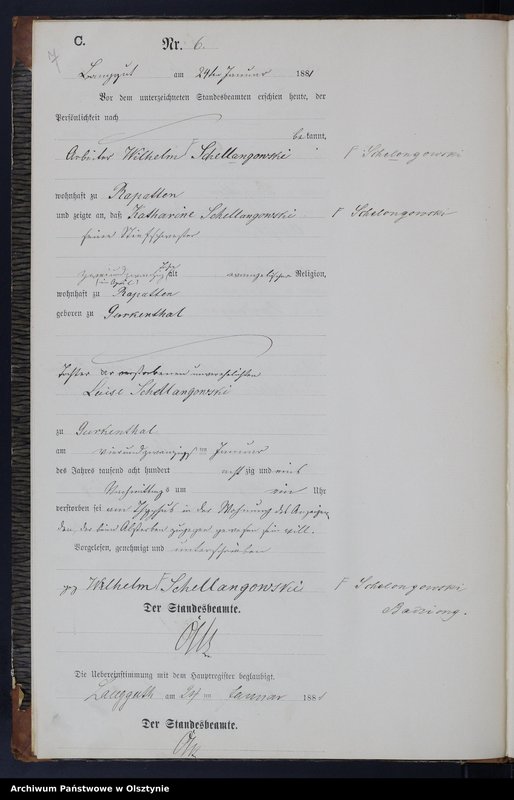 C.
Nr. 6.
Langgut am 24ten Januar 1881
Vor dem unterzeichneten Standesbeamten erschien heute, der
Persönlichkeit nach
bekannt,
Arbeiter Wilhelm Schellangowski
Γ Schelongowski
wohnhaft zu Rapatten
und zeigte an, daß Katharine Schellangowski
Γ Schelongowski
seine Stiefschwester
alt evangelischer Religion,
wohnhaft zu Rapatten
geboren zu Gurkenthal
Tochter der verstorbenen unverehelichten
Luise Schellangowski
zu Gurkenthal
am vierundzwanzigsten Januar
des Jahres tausend acht hundert achtzig und eins
Nachmittags um ein Uhr
verstorben sei am Typhus in der Wohnung des Anzeigen
den, der beim Absterben zugegen gewesen sein will.
Vorgelesen, genehmigt und unterschrieben
gez Wilhelm Γ Schellangowski
Γ Schelongowski
Der Standesbeamte.
Die Uebereinstimmung mit dem Hauptregister beglaubigt.
Langguth am 24 ten Januar 1881
Der Standesbeamte.
Archiwum Państwowe w Olsztynie